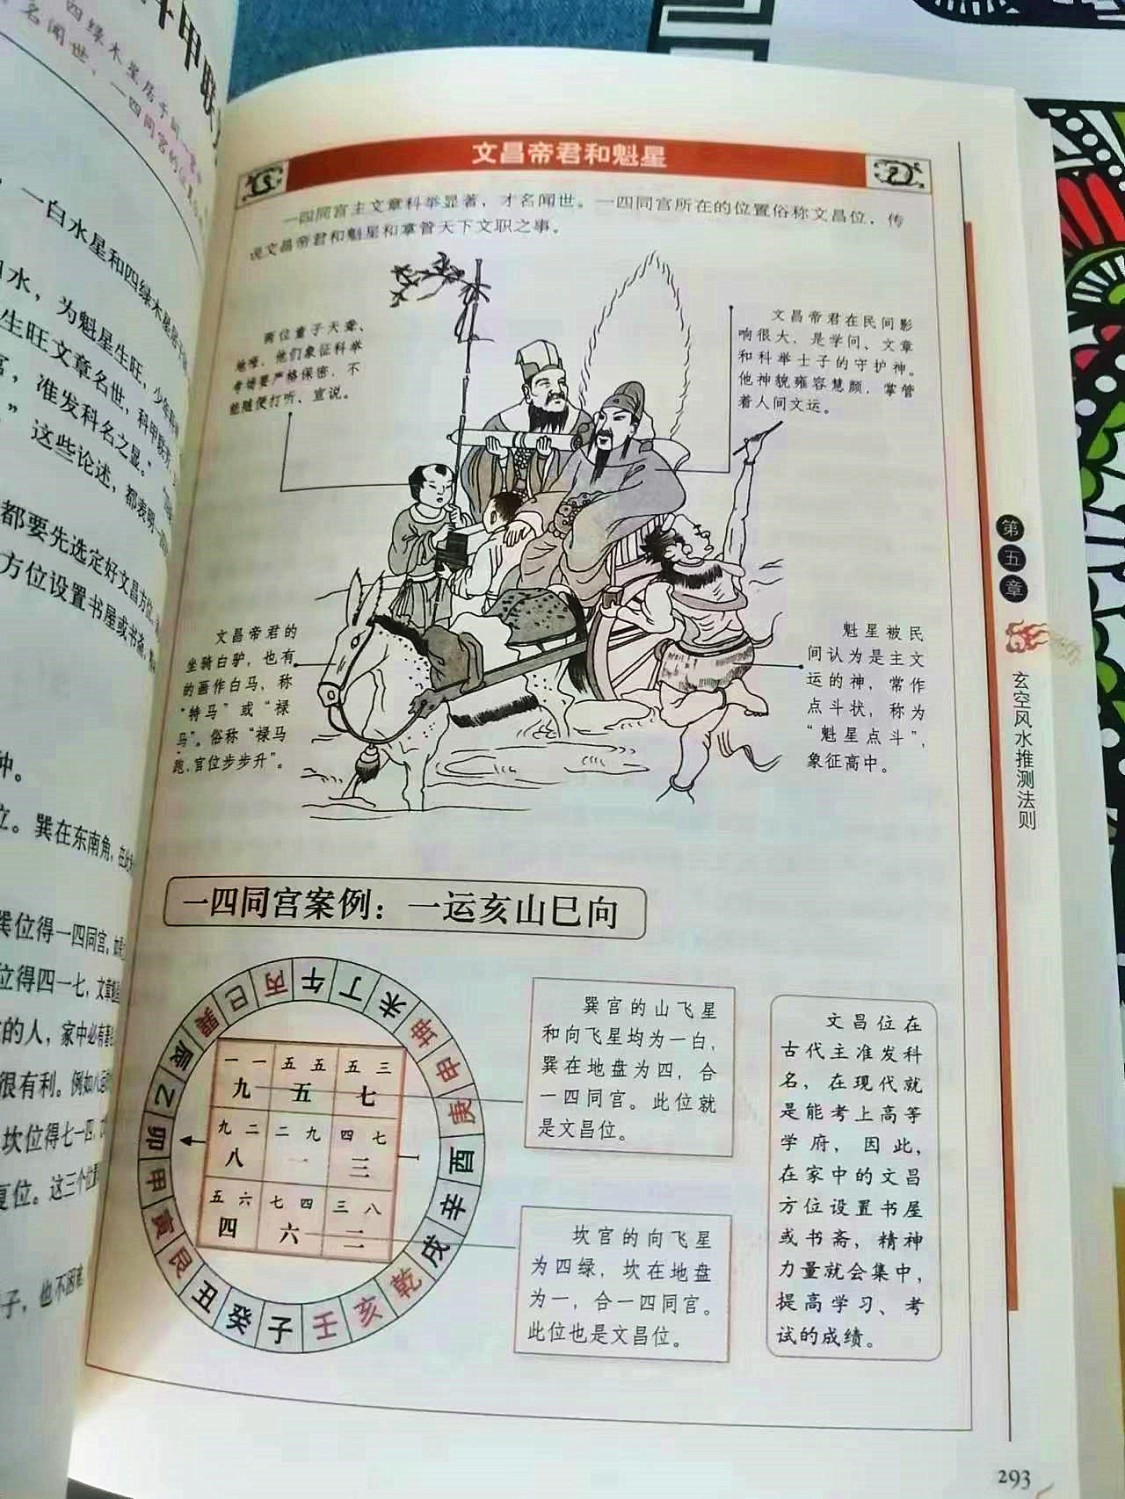 四绿木星居于同一宫
名闻世、一四同宫的
一白水星和四绿木星居于
白水，为魁星生旺，少年
生旺文章名世，科甲联
宫，准发科名之显。”
”这些论述，都表明一
都要先选定好文昌方位，
方位设置书屋或书斋，
钟。
立。巽在东南角，在
巽位得一四同宫。
位得四一七，文章
的人，家中必有
很有利。例如八运
坎位得七一四，
复位。这三个位置
子，也不困难
文昌帝君和魁星
一四同宫主文章科举显著，才名闻世。一四同宫所在的位置俗称文昌位，传
说文昌帝君和魁星和掌管天下文职之事。
两位童子天聋、
地哑，他们象征科举
考场要严格保密，不
能随便打听、宣说。
文昌帝君在民间影
响很大，是学问、文章
和科举士子的守护神。
他神貌雍容慧颜，掌管
着人间文运。
文昌帝君的
坐骑白驴，也有
的画作白马，称
“特马”或“禄
马”。俗称“禄马
跑，官位步步升”。
魁星被民
间认为是主文
运的神，常作
点斗状，称为
“魁星点斗”，
象征高中。
一四同宫案例：一运亥山巳向
巽 巳 丙 午 丁 未 坤 申 庚 酉 辛 戌 乾 亥 壬 子 癸 丑 艮 寅 甲 卯 乙 辰
一 一 五 五 五 三
九 五 七
九 二 二 九 四 七
八 一 三
五 六 七 四 三 八
四 六 二
巽宫的山飞星
和向飞星均为一白，
巽在地盘为四，合
一四同宫。此位就
是文昌位。
坎宫的向飞星
为四绿，坎在地盘
为一，合一四同宫。
此位也是文昌位。
文昌位在
古代主准发科
名，在现代就
是能考上高等
学府，因此，
在家中的文昌
方位设置书屋
或书斋，精神
力量就会集中，
提高学习、考
试的成绩。
第五章
玄空风水推测法则
293